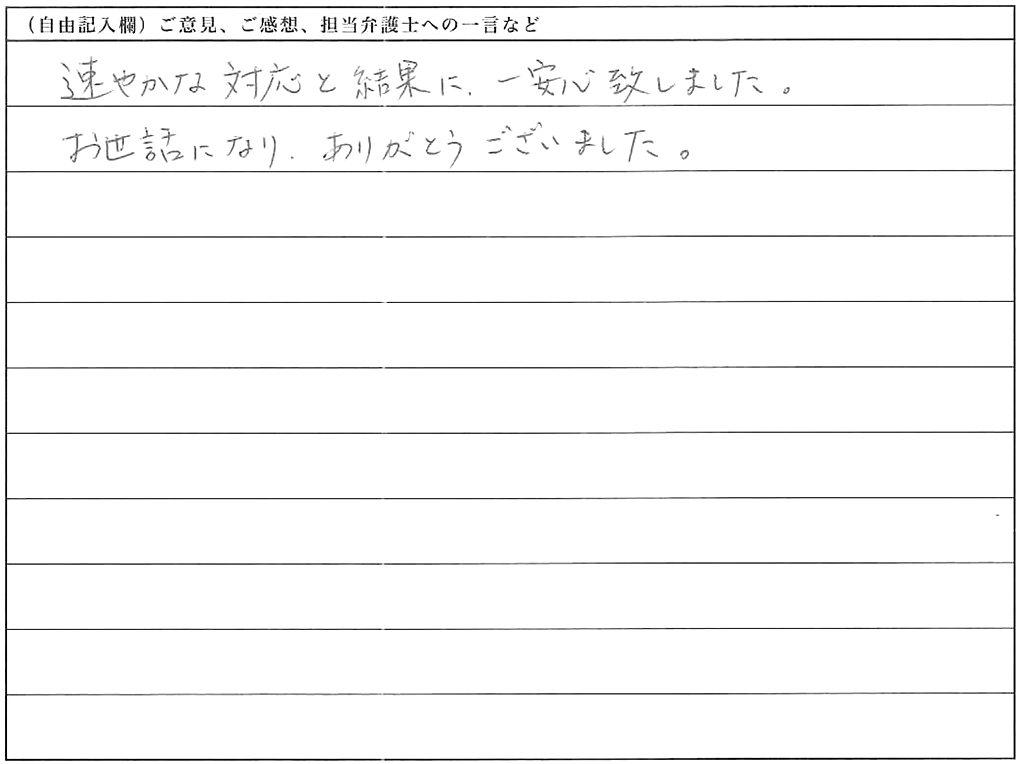 （自由記入欄）ご意見、ご感想、担当弁護士への一言など
速やかな対応と結果に、一安心致しました。
お世話になり、ありがとうございました。